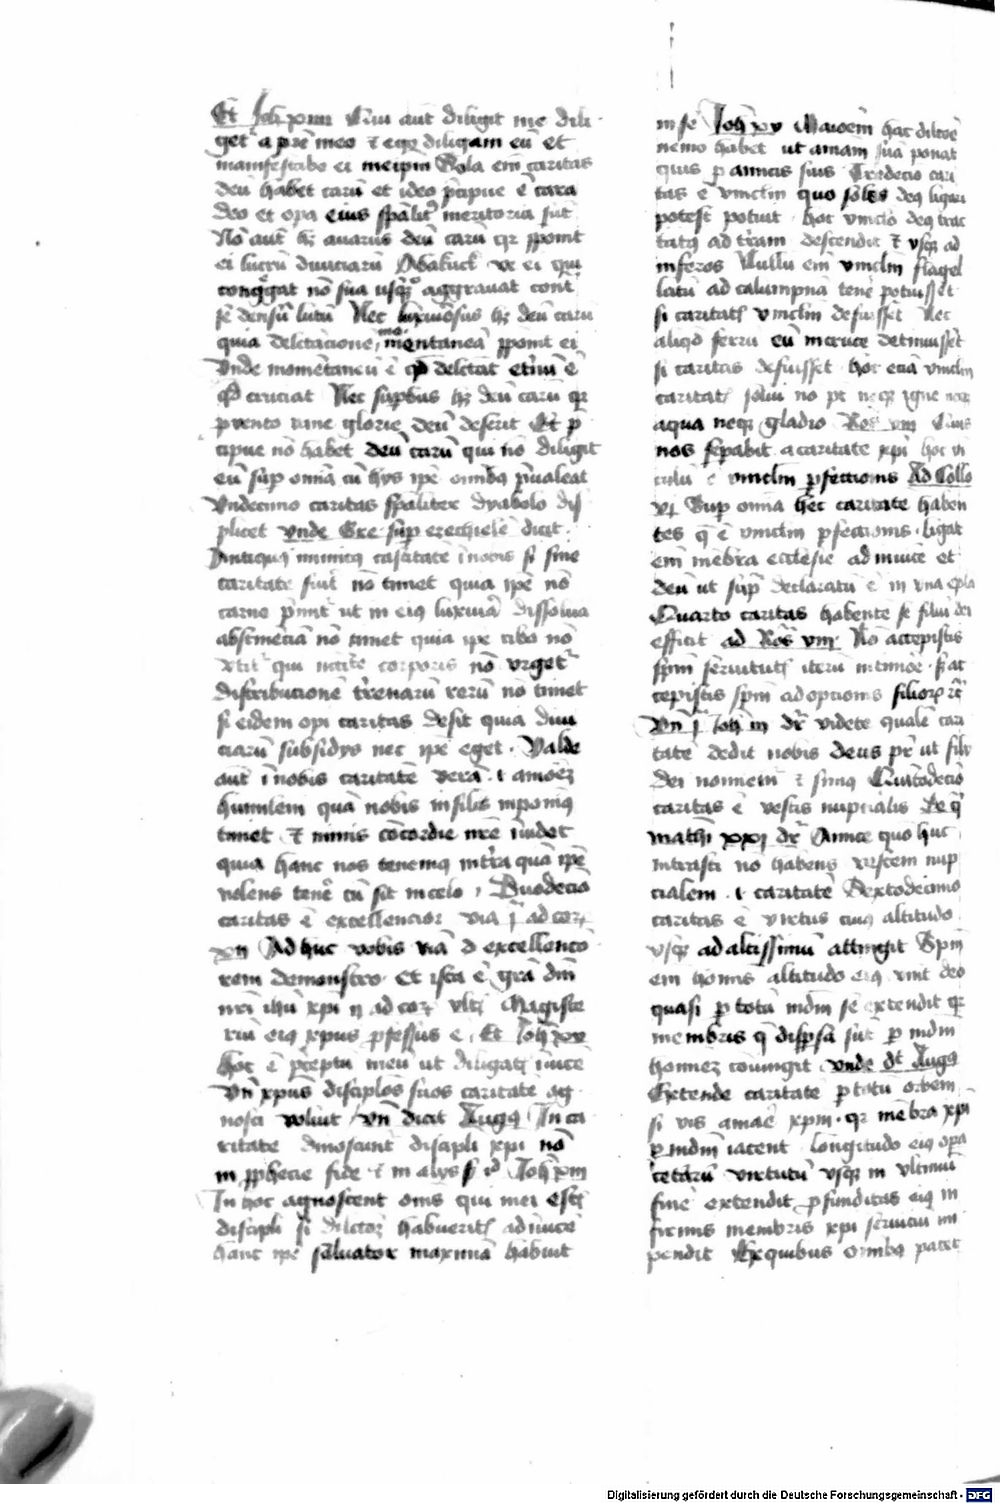 Et Joh xiiii Qui aut diligit me dili
get a pre meo et ego diligam eu et
manifestabo ei meipm Sola em caritas
deu habet caru et ideo pcipue e cara
deo et opa eius spualit meritoria sut
No aut hz auarus deu caru qr pponit
ei lucru diuiciaru Abakuck ve ei qui
congregat no sua usqz aggrauat cont
se densu lutu Nec luxuriosus hz deu caru
quia delectacione momentanea pponit ei
Vnde mometaneu e qd delectat eternu e
qd cruciat Nec supbus hz deu caru qr
pro vento vane glorie deu deserit Et p
cipue no habet deu caru qui no diligit
eu sup omia cu hys ipe omibz pualeat
Vndecimo caritas spualiter dyabolo dis
plicet vnde Gre sup ezechiele dicit
Antiquus inimicus castitate i nobis si sine
caritate fuit no timet quia ipe no
carne pmit ut in eius luxuria dissolua
abstinecia no timet quia ipe cibo no
vtit qui necessitate corporis no vrget
distributione terrenaru reru no timet
si eidem opi caritas desit quia diui
ciaru subsidys nec ipe eget Valde
aut i nobis caritate vera i amore
humilem qua nobis inponimus
timet et nimis cocordie nre inuidet
quia hanc nos tenemus in terra qua ipe
nolens tene cu sit in celo Duodecio
caritas e excellencior via j ad cor
xii Adhuc vobis via d excellencio
rem demonstro Et ista e gra dni
nri ihu xpi ij ad cor vlti Magiste
riu eius xpus pfessus e Et Joh xv
hoc e pceptu meu ut diligatis inuice
Vn xpus disciplos suos caritate ag
nosci voluit Vn dicit Augus In ca
ritate dinoscunt discipli xpi no
in pphecie fide et in alys Joh xiii
In hoc agnoscent oms qui mei estis
discipli si dilctoz habueritis adiuice
hanc ipe saluator maxima habuit
in se Joh xv Maiorem hac dilcoe
nemo habet ut amam sua ponat
quis p amicis suis Tredecio cari
tas e vinclm quo solus deus ligari
potest potuit hoc vinclo deus trac
tatus ad terram descendit et vsqz ad
inferos Nullu em vinclm flagel
latu ad calumpna tene potuisset
si caritatis vinclm defuisset Nec
aliqd ferru eu in cruce detinuisset
si caritas defuisset hoc etia vinclm
caritatis solui no pt neqz igne neqz
aqua neqz gladio Ros viii Quis
nos sepabit a caritate xpi hoc vi
culu e vinclm pfectionis Ad Collo
Sup omia hec caritate haben
tes q e vinclm pfectionis ligat
em mebra ecclesie ad inuice et
deu ut sup declaratu e in vna epla
Quarto caritas habente se filiu dei
efficit ad Ros viii No accepistis
spm seruitutis iteru in timore s ac
cepistis spm adoptionis filioz rc
Vn j Joh iii dr videte quale cari
tate dedit nobis deus pr ut filii
dei noinem et simus Quitodecio
caritas e vestis nuptialis de q
mathi xxij dr Amice quo huc
intrasti no habens vestem nup
cialem i caritate Sextodecimo
caritas e virtus cuius altitudo
vsqz ad altissimu attingit Spm
em hominis altitudo eius vnit deo
quasi p totu mdm se extendit qr
membris q dispsa sut p mdm
homiez coniungit vnde dt Augus
Extende caritate p totu orbem
si vis amare xpm qr mebra xpi
p mdm iacent longitudo eius opa
ceteraru virtutu vsqz in vltimu
fine extendit pfunditas eius in
firmis membris xpi seruitiu im
pendit Ex quibus omibz patet
Digitalisierung gefördert durch die Deutsche Forschungsgemeinschaft - DFG